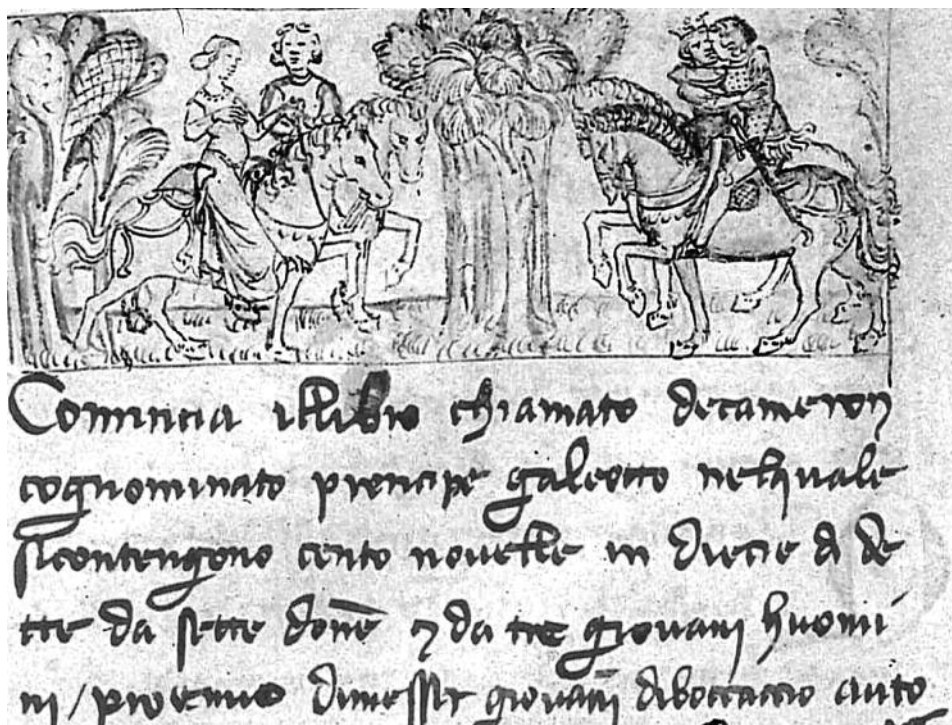 Comincia illibro chiamato decameron
cognominato prencipe galeotto nelquale
sicontengono cento novelle in diecie di de
tte da sette done & da tre giovani huomi
ni / proemio dimessir giovani diboccaccio auto